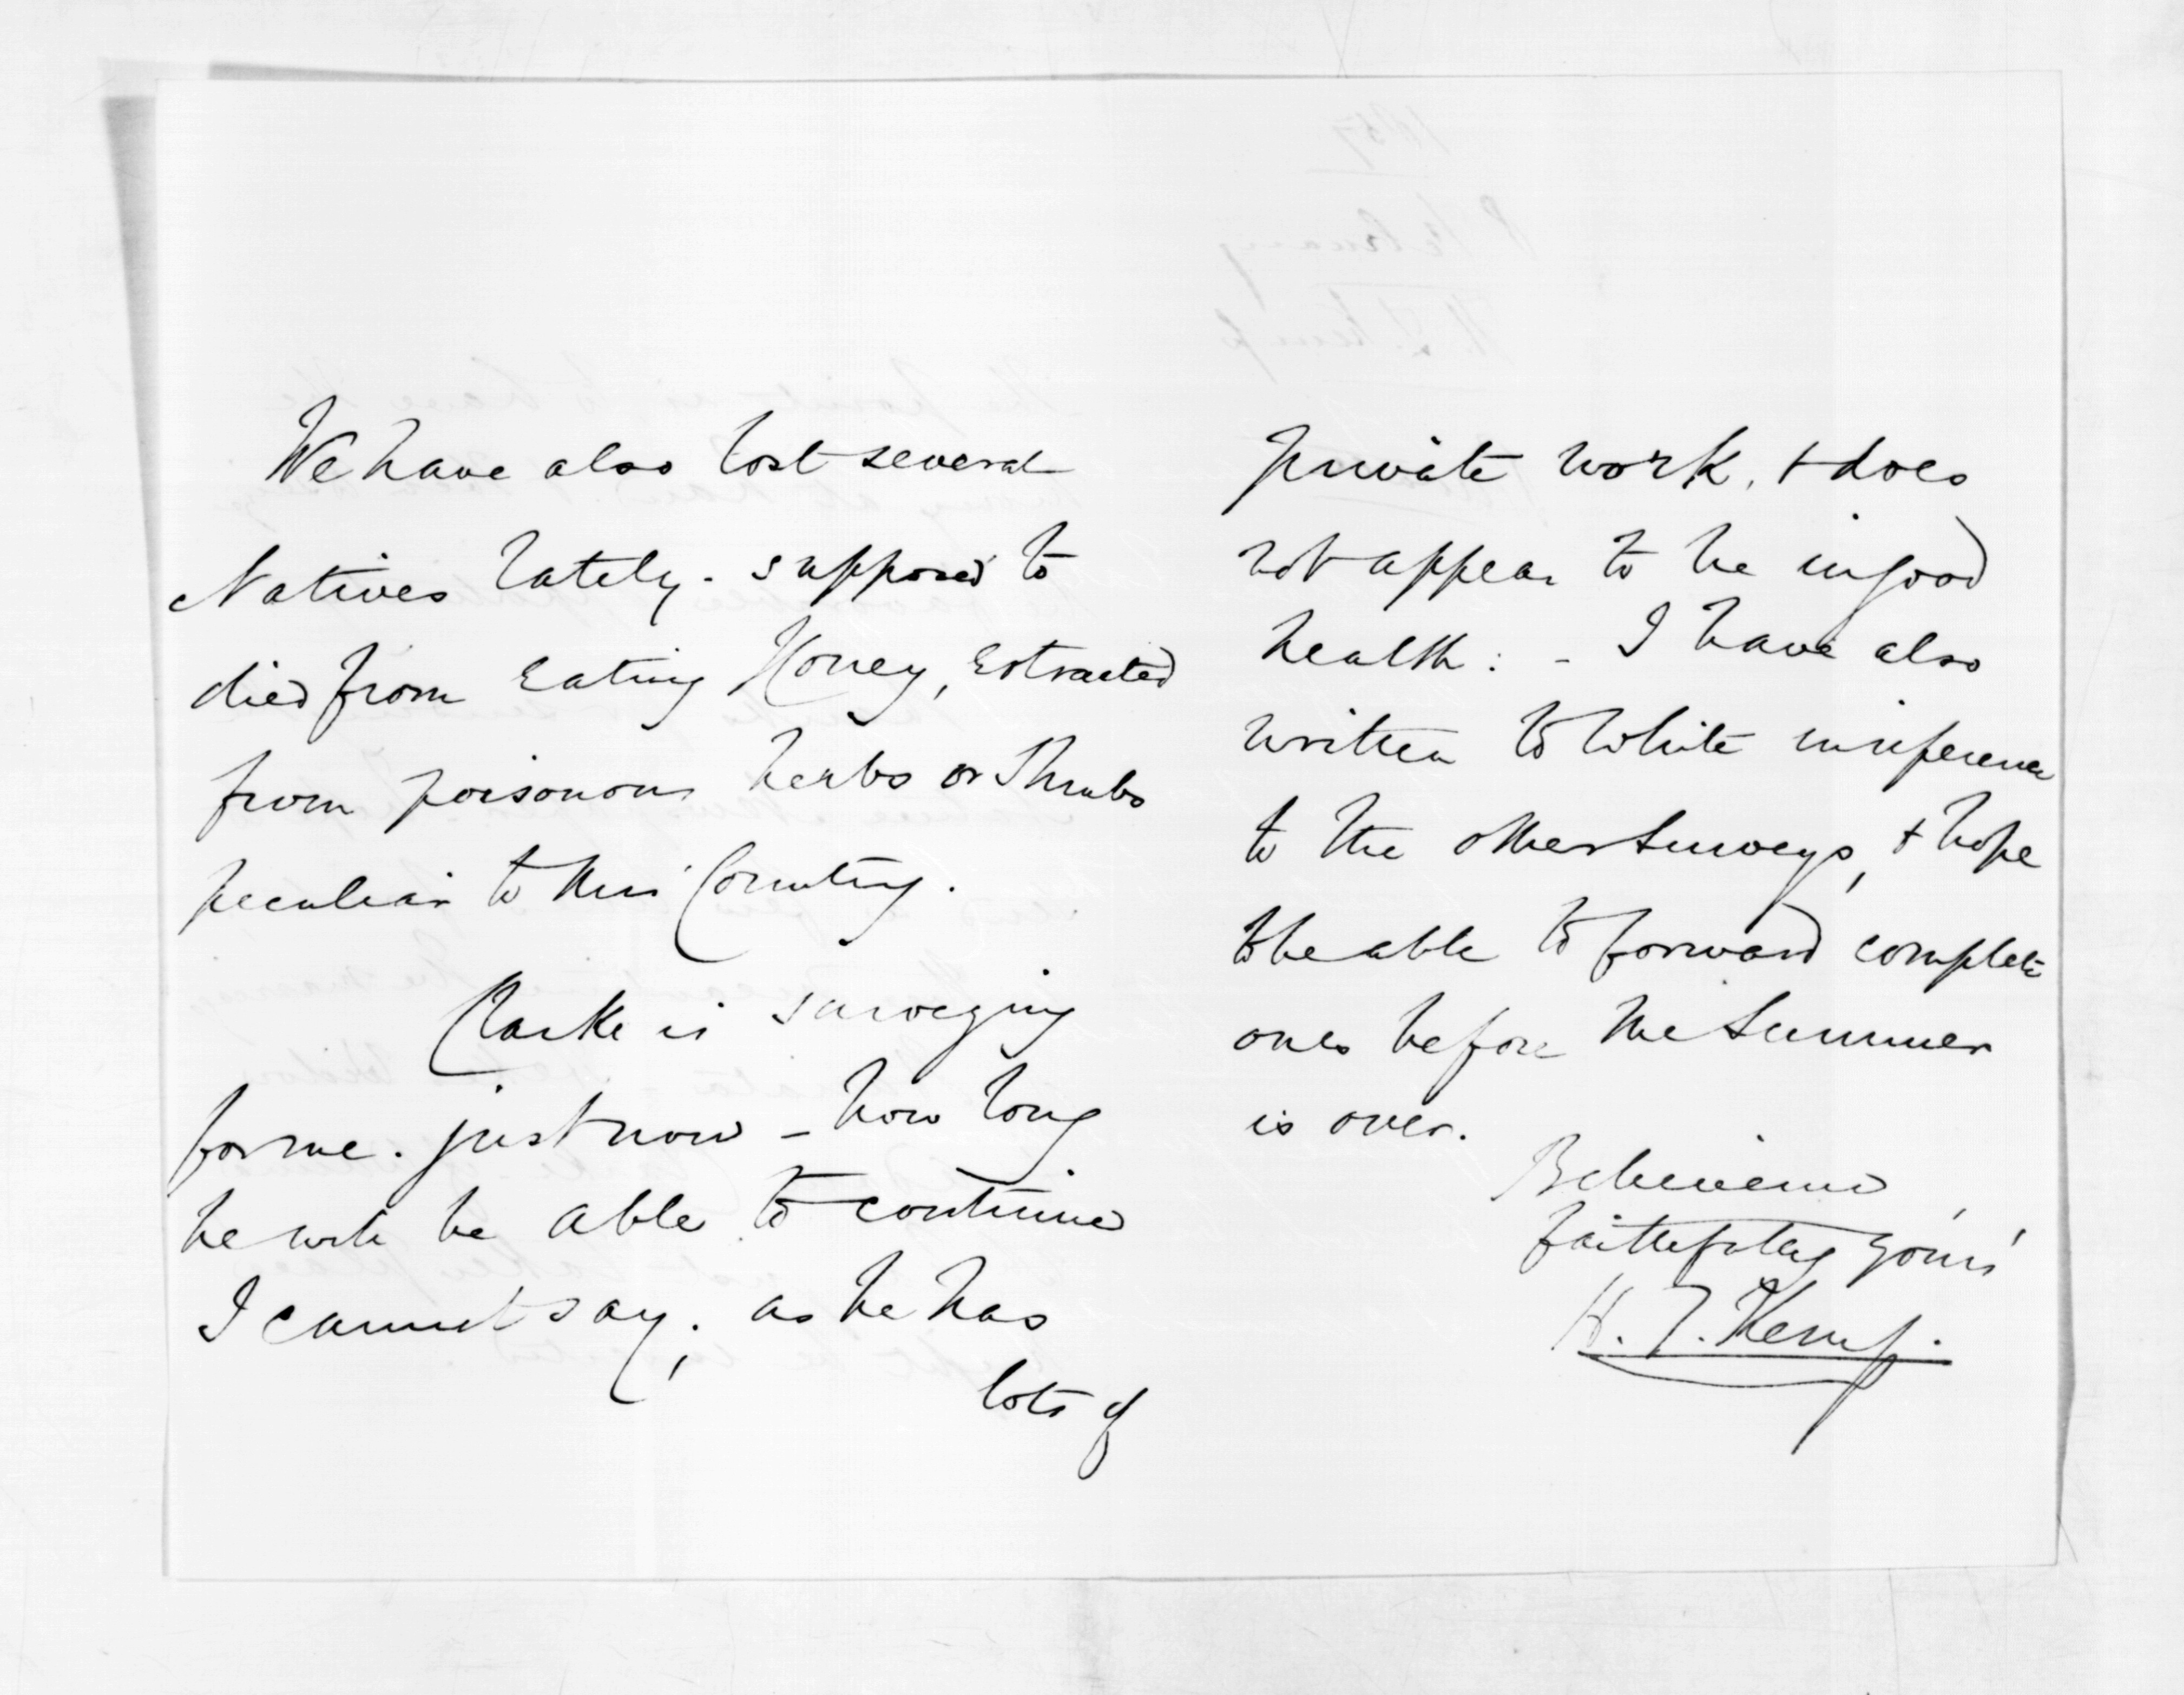 We have also lost several
Natives lately. supposed to
died from eating Honey, extracted
from poisonous herbs or Shrubs
peculiar to this Country.
Clarke is surveying
for me. just now – how long
he will be able to continue
I cannot say; as he has
lots of
private work, & does
not appear to be in good
health: – I have also
written to White in reference
to the other Surveys, & hope
to be able to forward complete
ones before the Summer
is over.
Believe me
faithfully yours
H. T. Kemp.
1857
8 February
H. T. Kemp